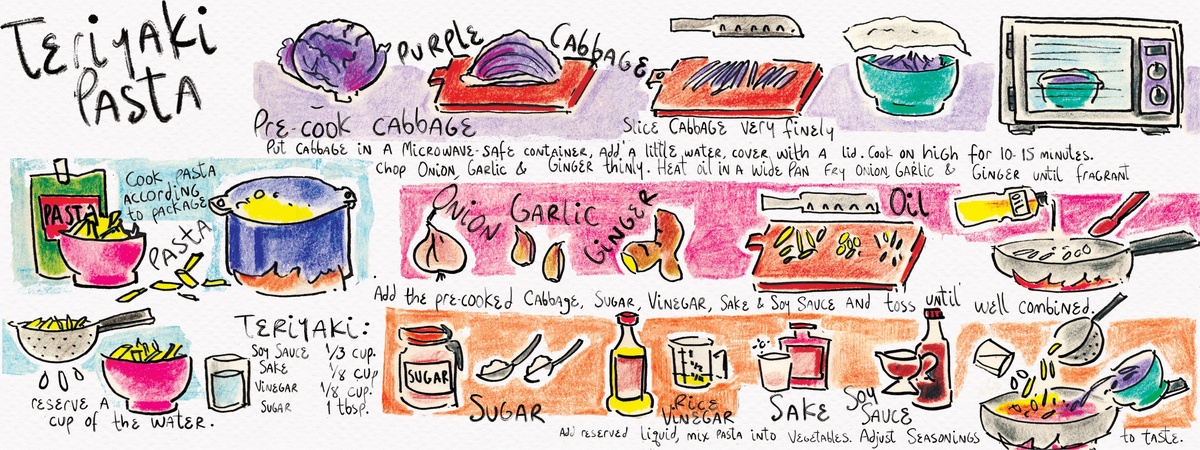 Teriyaki
Pasta
Purple Cabbage
Pre-cook Cabbage
Slice Cabbage very finely
Put cabbage in a microwave-safe container, add a little water, cover with a lid. Cook on high for 10-15 minutes.
Chop Onion, Garlic & Ginger thinly. Heat oil in a wide pan Fry Onion, Garlic & Ginger until fragrant
Cook pasta
according
to package
PASTA
Pasta
Onion
Garlic
Ginger
Oil
Add the pre-cooked Cabbage, Sugar, Vinegar, Sake & Soy Sauce and toss until well combined.
reserve a
cup of the water.
Teriyaki:
Soy Sauce 1/3 cup.
Sake 1/8 cup
Vinegar 1/8 cup.
Sugar 1 tbsp.
SUGAR
Sugar
Rice
Vinegar
Sake
Soy
Sauce
Add reserved liquid, mix pasta into vegetables. Adjust Seasonings to taste.